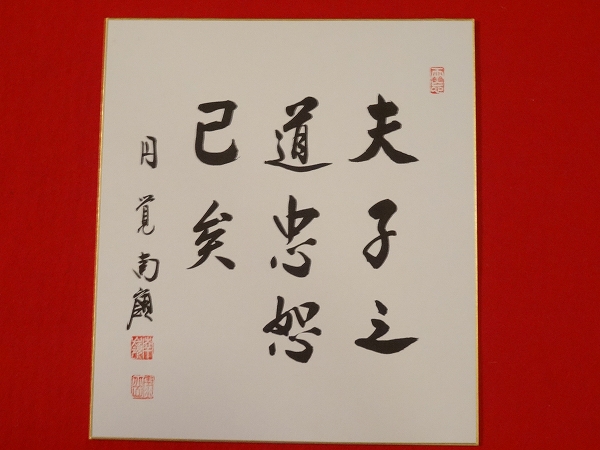 夫子之
道忠恕
已矣
円覚南嶺